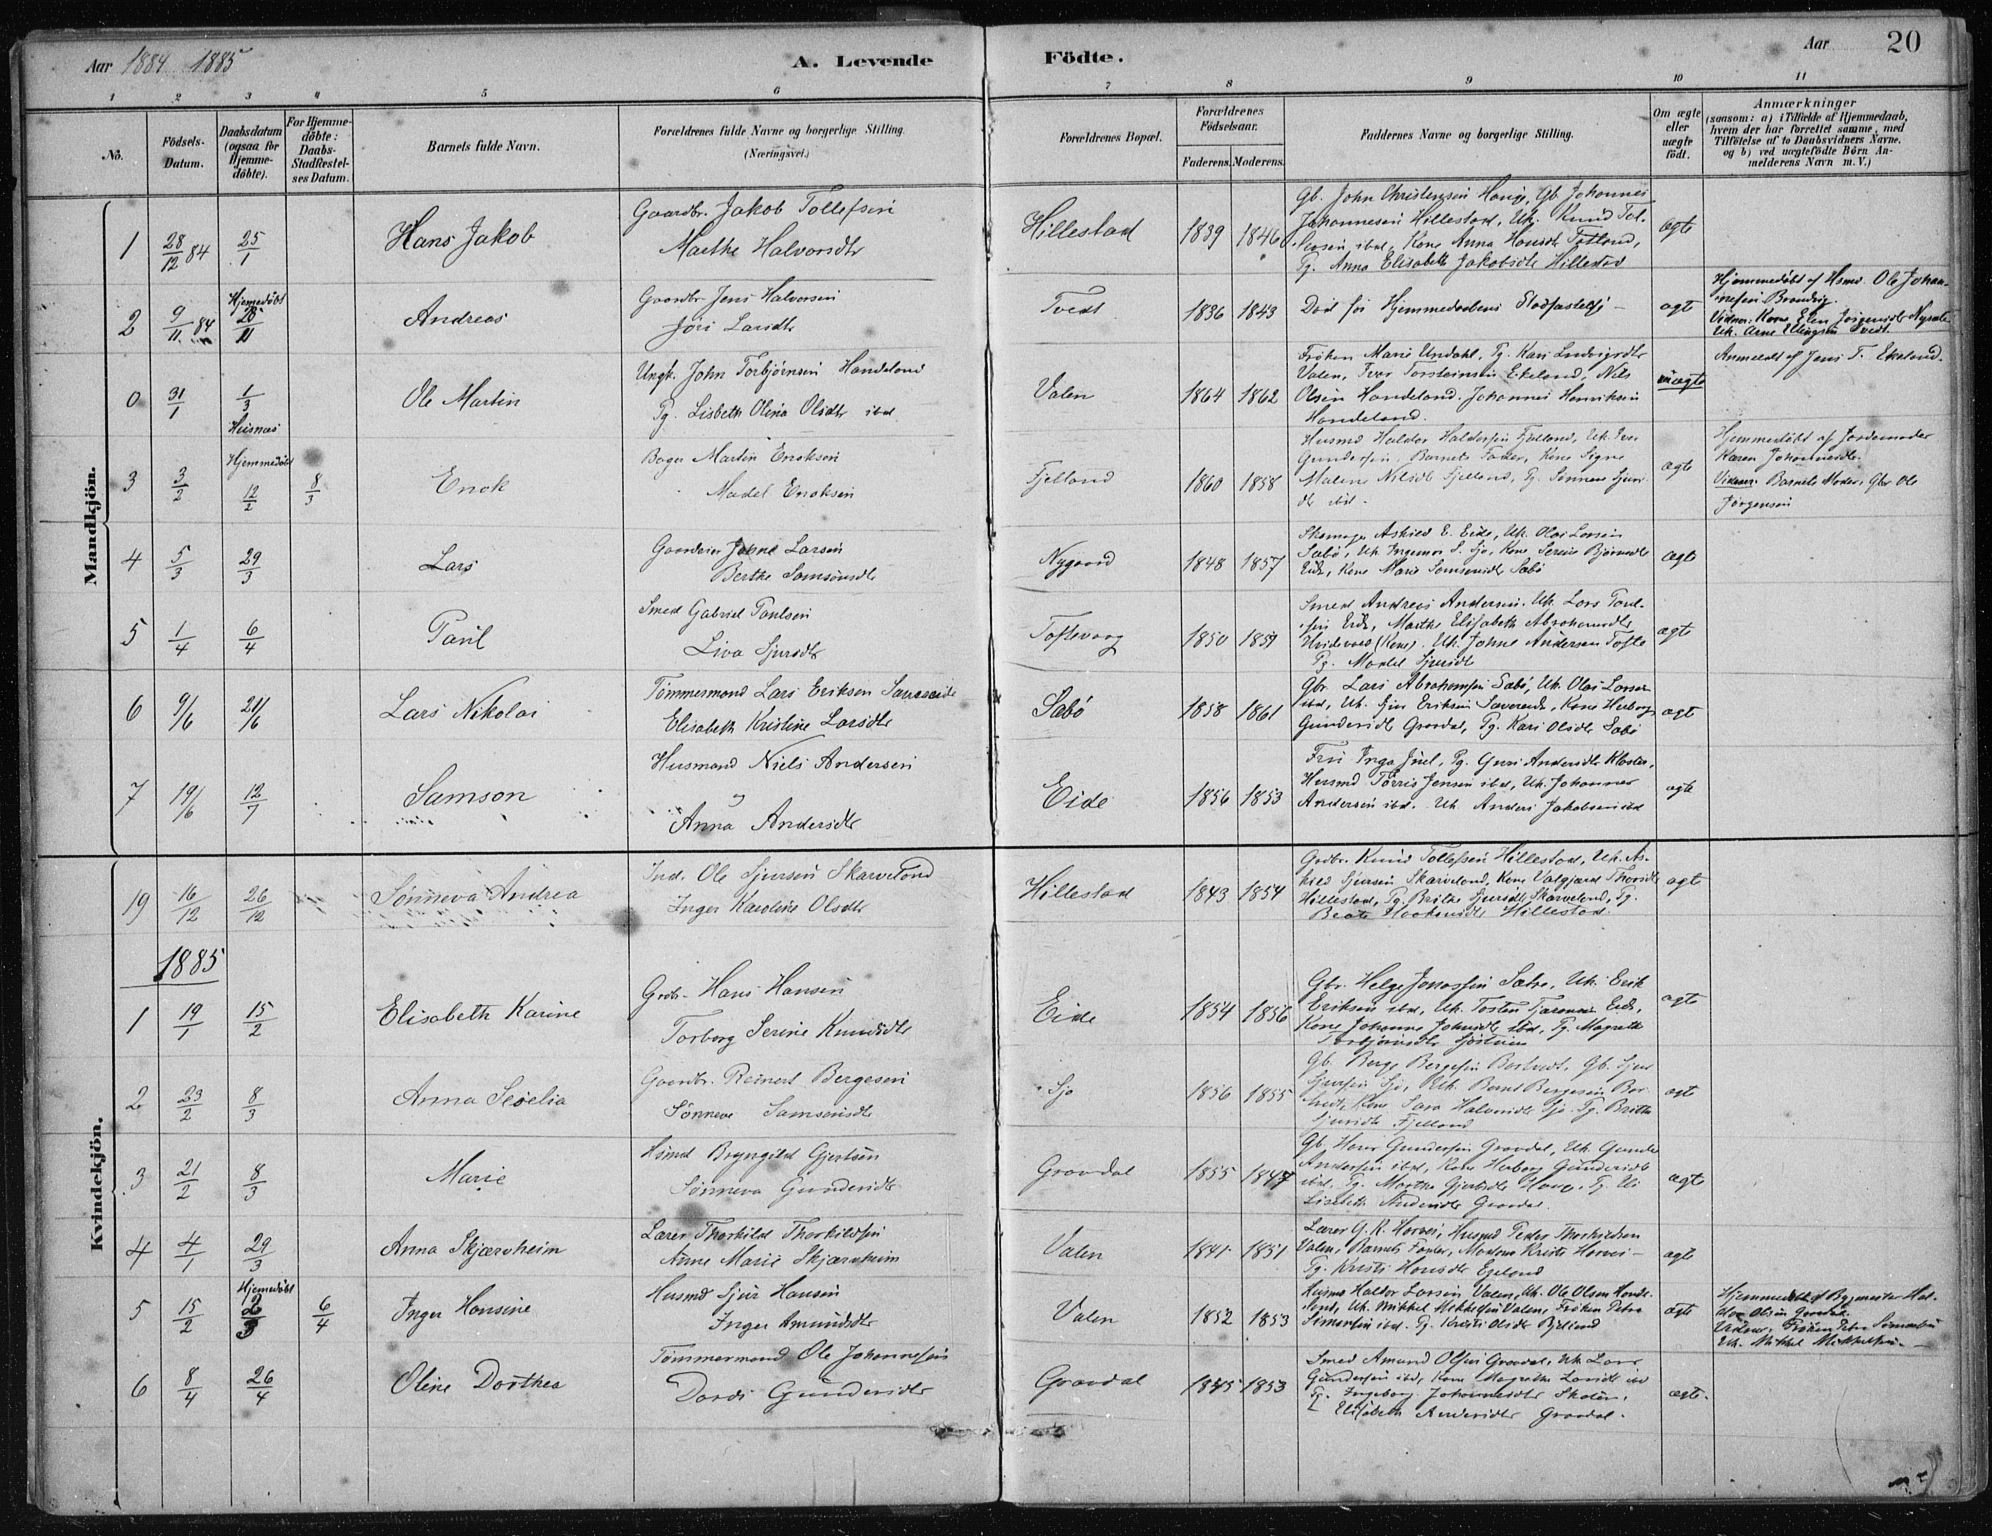 Aar 1884 1885
A. Levende Födte.
Aar 20
1 2 3 4 5 6 7 8 9 10 11
No.
Födsels-Datum.
Daabsdatum (ogsaa for Hjemme-döbte).
For Hjemme-döbte: Daabs-Stadfæstel-ses Datum.
Barnets fulde Navn.
Forældrenes fulde Navne og borgerlige Stilling. (Næringsvei.)
Forældrenes Bopæl.
Forældrenes Födselsaar.
Faderens. Moderens.
Faddernes Navne og borgerlige Stilling.
Om ægte eller uægte födt.
Anmærkninger
(saasom: a) i Tilfælde af Hjemmedaab,
hvem der har forrettet samme, med
Tilföielse af to Daabsvidners Navne,
og b) ved uægtefödte Börn An-
melderens Navn m. V.)
Mandkjön.
1 28/12 84 25/1 Hans Jakob
Gaardbr. Jakob Tollefsen
Marthe Halvorsdtr
Hillestad 1839 1846
Gb. John Christensen Hauge, Gb. Johannes
Johannesen Hillestad, Uk. Knud Tol-
lefsen ibd, Kone Anna Hansdtr Totland,
Pg. Anna Elisabeth Jakobsdtr Hillestad
ægte
2 9/11 84 Hjemedöbt Andreas
Gaardbr Jens Halvorsen
Jöri Larsdtr
Tvedt 1836 1843
Död för Hjemmedaabens Stadfæstelse —
ægte
Hjemmedöbt af Hsmd. Ole Johan-
nesen Brandvig.
0 31/1 1/3 Husnæs Ole Martin
Ungk. John Torbjørnsen Handeland
Pg. Lisbeth Olina Olsdtr ibd
Valen 1864 1862
Fröken Marie Undahl, Pg. Kari Ludvigsdtr
Valen, Iver Torsteinsen Ekeland, Nils
Olsen Handeland. Johannes Henriksen
Handeland.
uægte
Anmeldt af Jens T. Ekeland.
3 3/2 Hjemmedöbt 12/2 8/3 Enok
Bager Martin Enoksen
Madel Enoksen
Fjelland 1860 1858
Husmd Haldor Haldorsen Fjelland, Uk. Iver
Gundersen, Barnets Fader, Kone Signe
Malene Nilsdtr Fjelland, Pg. Sönneve Sjurs-
dtr ibd.
ægte
Hjemmedöbt af Jordemoder
Karen Johannesdtr.
Vidner: Barnets Moder, Gbr Ole
Jörgensen
4 5/3 29/3 Lars
Gaardeier Johne Larsen
Berthe Samsonsdtr
Nygaard 1848 1857
Skomager Askild E. Eide, Uk. Olai Larsen
Sæbö, Uk. Ingemar S. Sjo, Kone Serine Björnsdtr
Eide, Kone Marie Samsonsdtr Sæbö
ægte
5 1/4 6/4 Paul
Smed Gabriel Paulsen
Liva Sjursdtr
Toftevaag 1850 1859
Smed Andreas Andersen. Uk. Lars Paul-
sen Eide, Marthe Elisabeth Abrahamsdtr
(Kone). Uk. Johne Andersen Tofte
Pg. Madel Sjursdtr
ægte
6 9/6 21/6 Lars Nikolai
Tömmermand Lars Eriksen
Elisabeth Kristine Larsdtr
Sæbö 1858 1861
Gbr. Lars Abrahamsen Sæbö, Uk. Olai Larsen
ibd, Uk. Sjur Eriksen Sæverud, Kone Herborg
Gundersdtr Graadal, Pg. Kari Olsdtr Sæbö
ægte
7 19/6 12/7 Samson
Husmand Niels Andersen
Anna Andersdtr
Eide 1856 1853
Frue Inga Juel, Pg. Guri Andersdtr Kloster,
Husmd Torris Jensen ibd, Uk. Johannes
Andersen ibd. Uk. Anders Jakobsen ibd
ægte
Kvindekjön.
19 16/12 26/12 Sönneva Andrea
Ind. Ole Sjursen Skarveland
Inger Karoline Olsdtr
Hillestad 1843 1854
Grdbr. Knud Tollefsen Hillestad, Uk. As-
kild Sjursen Skarveland, Kone Valgjerd Thorsdtr
Hillestad, Pg. Brithe Sjursdtr Skarveland, Pg.
Beate Haakonsdtr Hillestad.
ægte
1885
1 19/1 15/2 Elisabeth Karine
Grdbr. Hans Hansen
Torborg Serine Knudsdtr
Eide 1854 1856
Gbr. Helge Jonassen Sætre, Uk. Erik
Eriksen ibd, Uk. Tosten Eide,
Kone Johanne Johnsdtr ibd, Pg. Magrethe
Torbjørnsdtr
ægte
2 23/2 8/3 Anna Seselia
Gaardbr. Reinert Bergesen
Sönneve Samsonsdtr
Sjo 1856 1855
Gb. Berge Bergesen Bortvedt, Gb. Sjur
Sjursen Sjo, Uk. Bernt Bergesen Bor-
tvedt, Kone Sara Halvorsdtr Sjo Pg. Brithe
Sjursdtr Fjelland
ægte
3 21/2 8/3 Marie
Hsmd Bryngild Gjertsen
Sönneva Gundersdtr
Graadal 1855 1847
Gb. Hans Gundersen Graadal, Uk. Gunder
Andersen ibd, Kone Herborg Gundersdtr
ibd. Pg. Marthe Gjertsdtr Hauge, Pg. Eli
Lisabeth Andersdtr Graadal.
ægte
4 4/1 29/3 Anna Skjærsheim
Lærer Thorkild Thorkildsen
Anne Marie Skjærsheim
Valen 1841 1851
Lærer G. K. Horvei, Husmd Peder Thorkildsen
Valen, Barnets Fader, Madame Kristi Horvei —
Pg. Kristi Hansdtr Egeland
ægte
5 15/2 Hjemedöbt 6/4 Inger Hansine
Husmd Sjur Hansen
Inger Amundsdtr
Valen 1852 1853
Husmd Haldor Larsen Valen, Uk. Ole Olsen Hande-
land, Uk. Mikkel Mikkelsen Valen, Fröken Petra
Simonsen ibd. Pg. Kristi Olsdtr Bjelland
ægte
Hjemmedöbt af Bygmester Hal-
dor Olsen Graadal.
Vidner, Fröken Petra Simonsen
Uk. Mikkel Mikkelsen. —
6 8/4 26/4 Oline Dorthea
Tömmermand Ole Johannesen
Dordi Gundersdtr
Graadal 1845 1853
Smed Amund Olsen Graadal, Uk. Lars
Gundersen ibd, Kone Magrethe Larsdtr ibd
Pg. Ingeborg Johannesdtr
Elisabeth Andersdtr Graadal.
ægte.